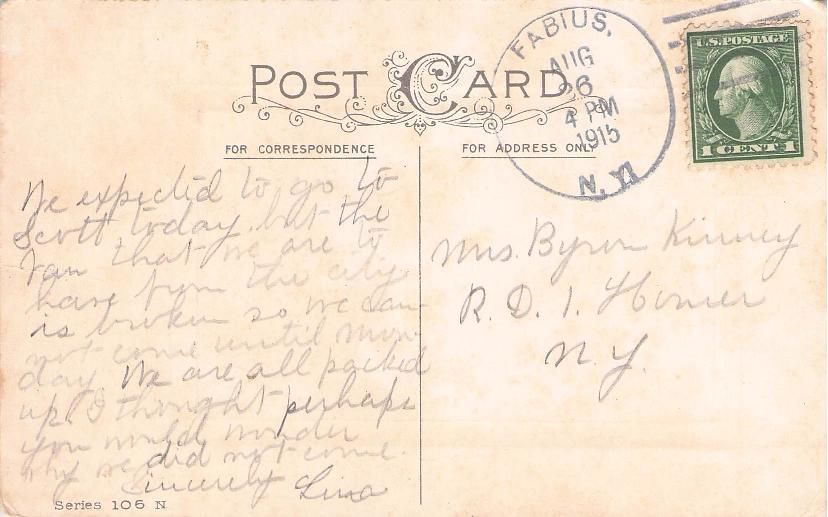 POST CARD
FOR CORRESPONDENCE
FOR ADDRESS ONLY
FABIUS,
AUG
26
4 PM
1915
N. Y.
U.S. POSTAGE
1 CENT 1
We expected to go to
Scott today but the
Van that we are to
have from the city
is broken so we can-
not come until Mon-
day. We are all packed
up. I thought perhaps
you would wonder
why we did not come.
Sincerely Lina
Mrs. Byron Kinney
R. D. 1. Homer
N. Y.
Series 106 N